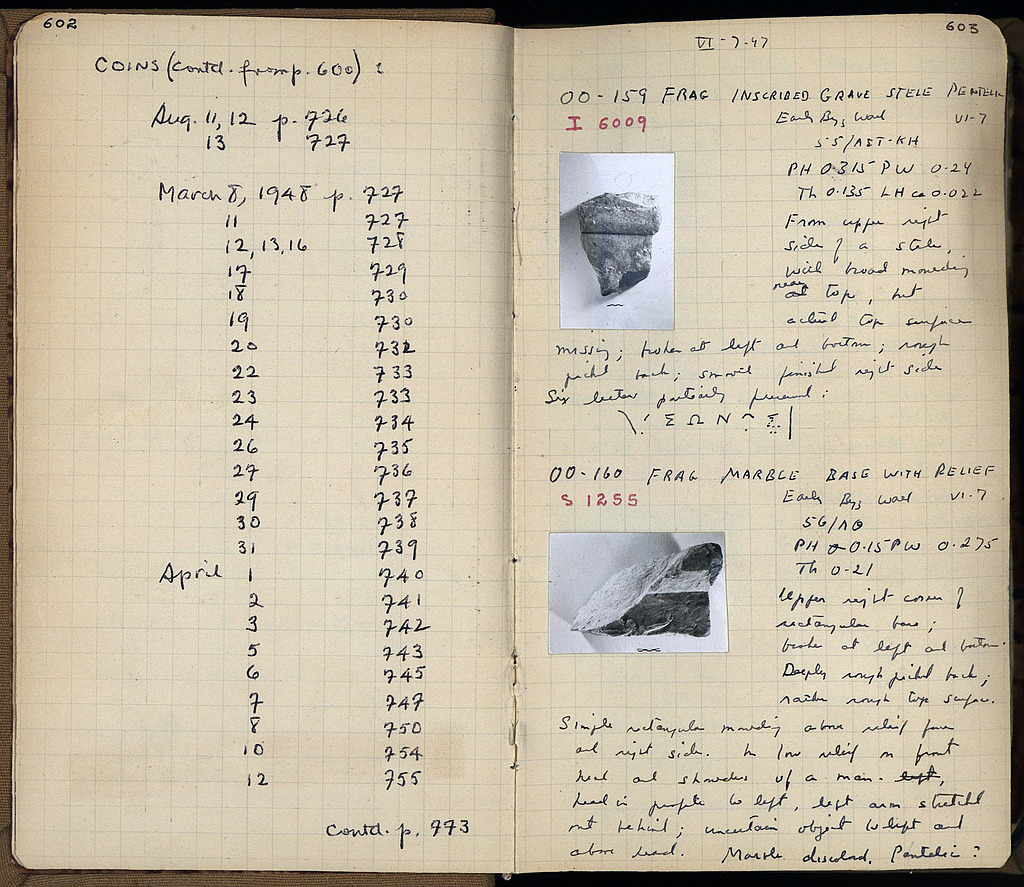 602
COINS (contd. from p. 600) :
Aug. 11, 12 p. 726
13 727
March 8, 1948 p. 727
11 727
12, 13, 16 728
17 729
18 730
19 730
20 732
22 733
23 733
24 734
26 735
27 736
29 737
30 738
31 739
April 1 740
2 741
3 742
5 743
6 745
7 747
8 750
10 754
12 755
Contd. p. 773
603
VI-7-47
OO-159 FRAG INSCRIBED GRAVE STELE PENTELIC
I 6009
Early Byz Wall VI-7
55/ΛΣΤ-ΚΗ
PH 0.315 PW 0.24
Th 0.135 LH ca 0.022
From upper right
side of a stele,
with broad moulding
near at top, but
actual top surface
missing; broken at left and bottom; rough
picked back; smooth finished right side
Six letters partially preserved:
Σ Ω Ν
OO-160 FRAG MARBLE BASE WITH RELIEF
S 1255
Early Byz Wall VI-7
56/ΛΘ
PH 0.15 PW 0.275
Th 0.21
Upper right corner of
rectangular base;
broken at left and bottom.
Deeply rough picked back;
rather rough top surface.
Simple rectangular moulding above relief face
and right side. In low relief on front
head and shoulders of a man. left,
head in profile to left, left arm stretched
out behind; uncertain object to left and
above head. Marble discolored, Pentelic?